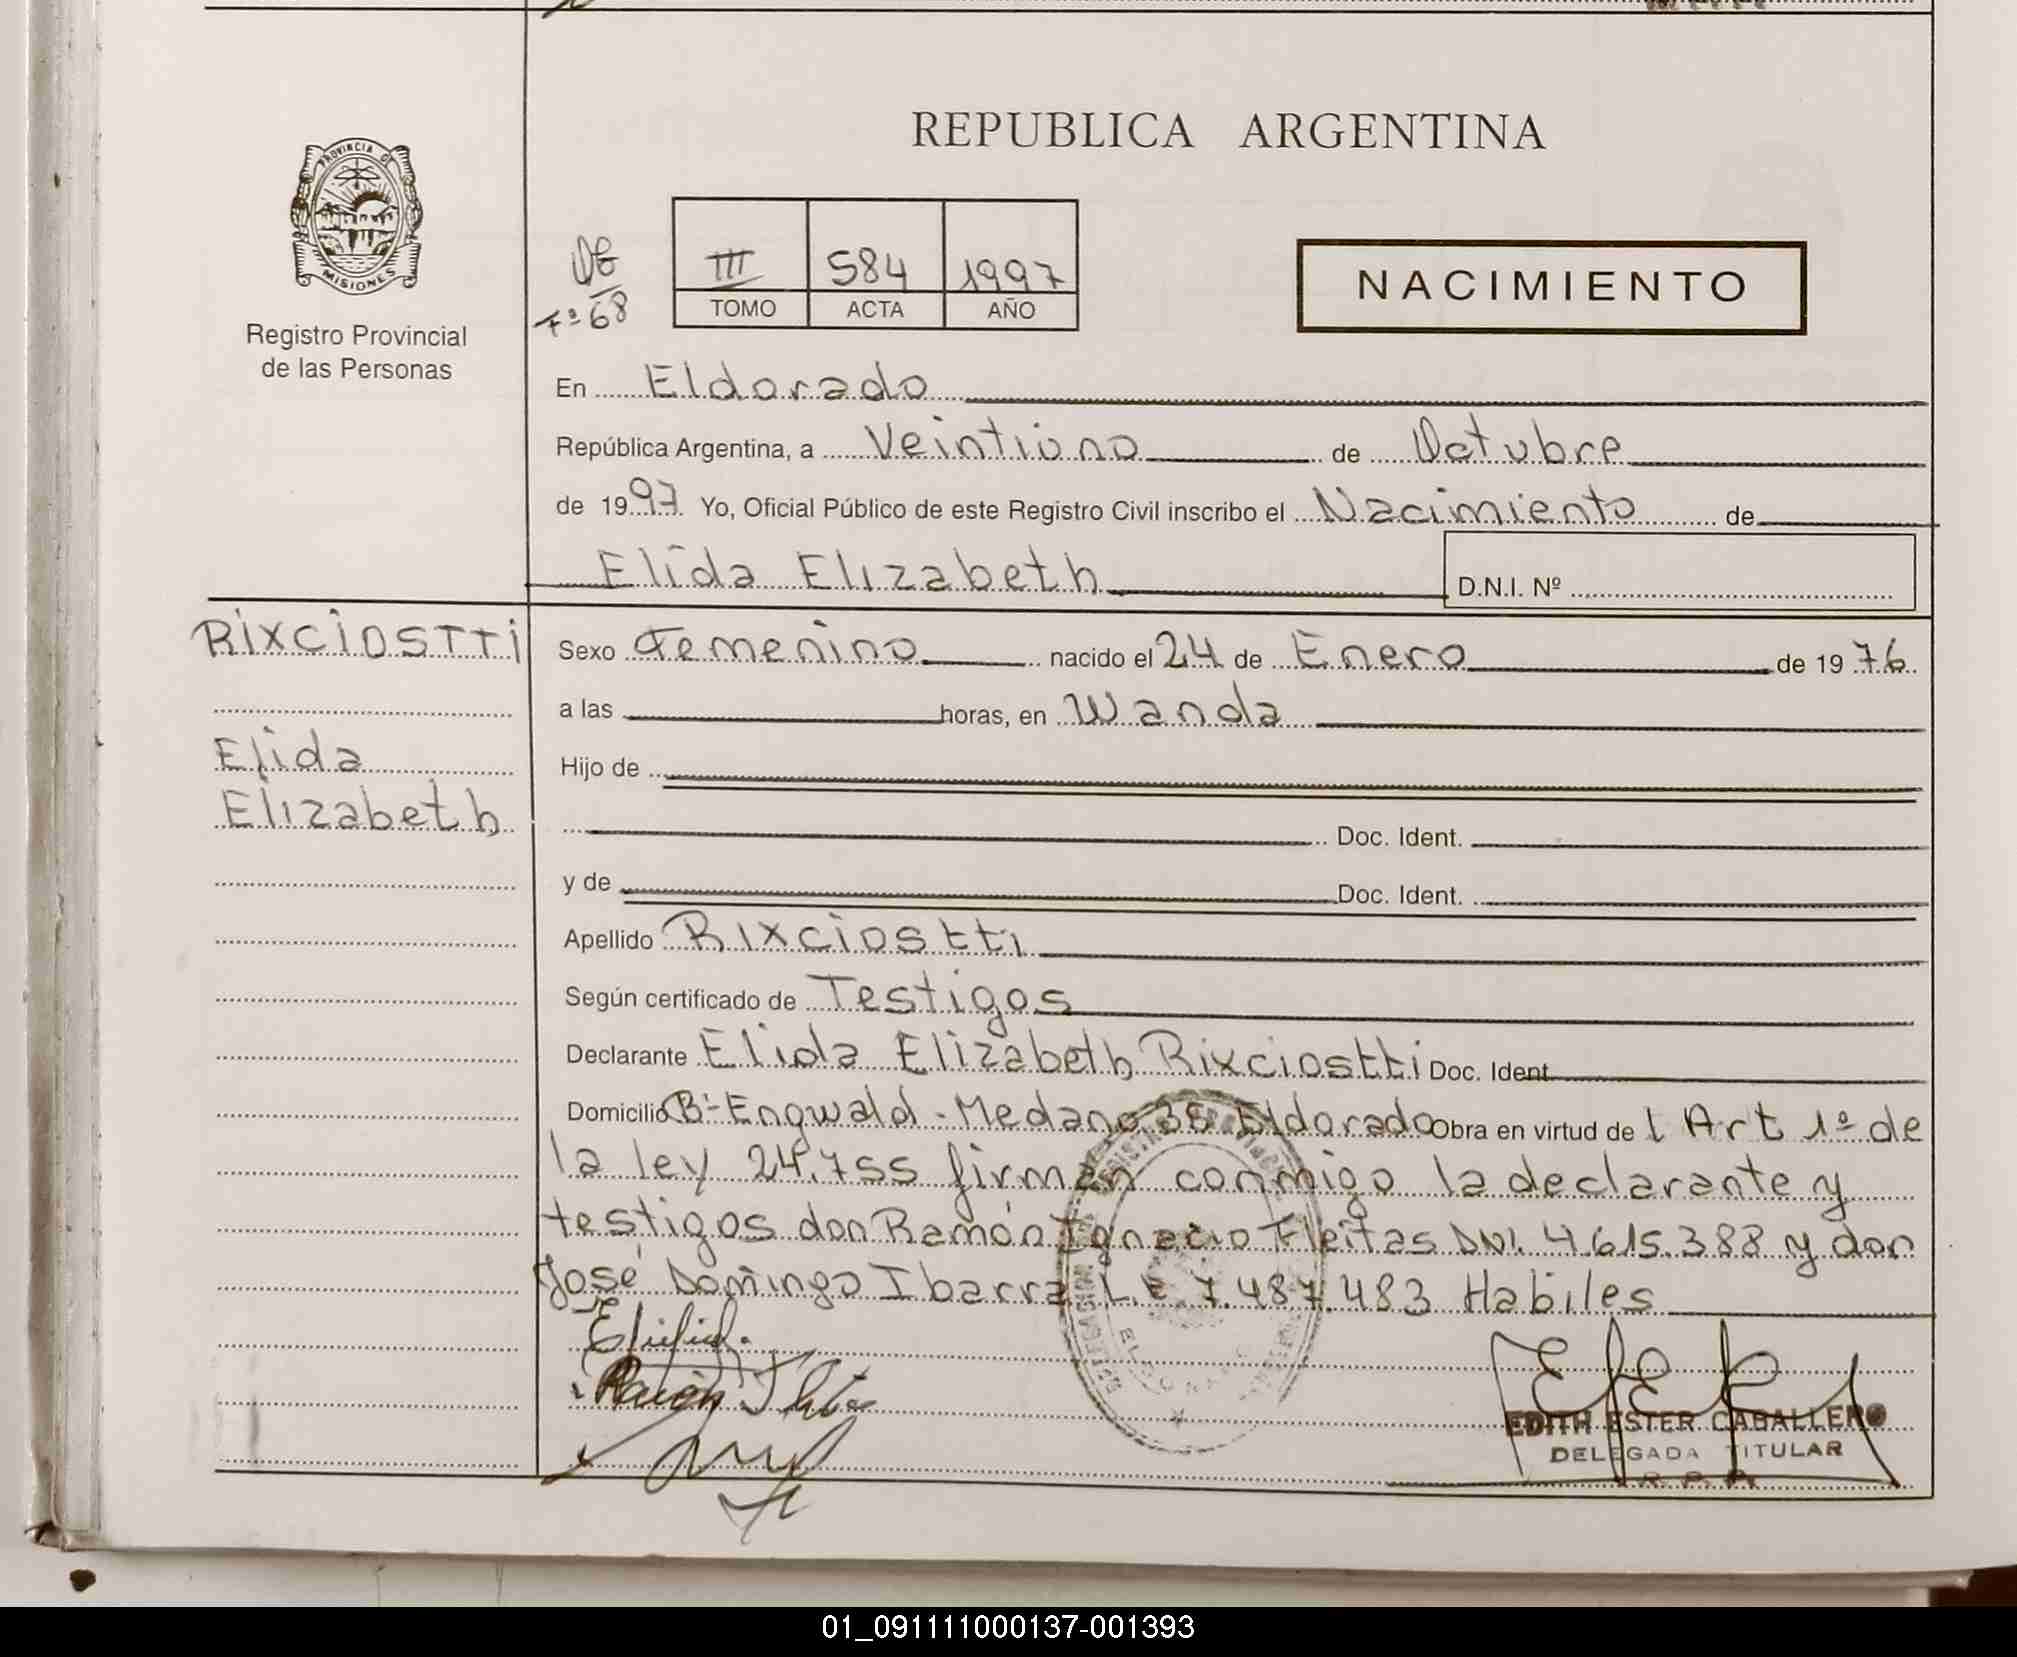 REPUBLICA ARGENTINA
PROVINCIA DE
MISIONES
Registro Provincial
de las Personas
Fº 68
III 584 1997
TOMO ACTA AÑO
NACIMIENTO
En Eldorado
República Argentina, a Veintiuno de Octubre
de 1997 Yo, Oficial Público de este Registro Civil inscribo el Nacimiento de
Elida Elizabeth D.N.I. Nº
RIXCIOSTTI
Elida
Elizabeth
Sexo Femenino nacido el 24 de Enero de 1976
a las horas, en Wanda
Hijo de
Doc. Ident.
y de Doc. Ident.
Apellido Rixciostti
Según certificado de Testigos
Declarante Elida Elizabeth Rixciostti Doc. Ident.
Domicilio Bº Engwald - Medano 38 Eldorado Obra en virtud de l Art 1º de
la ley 24.755 firman conmigo la declarante y
testigos don Ramón Ignacio Fleitas DNI. 4.615.388 y don
José Domingo Ibarra L.E 7.487.483 Habiles
EDITH ESTER CABALLERO
DELEGADA TITULAR
R. P. P.
01_091111000137-001393